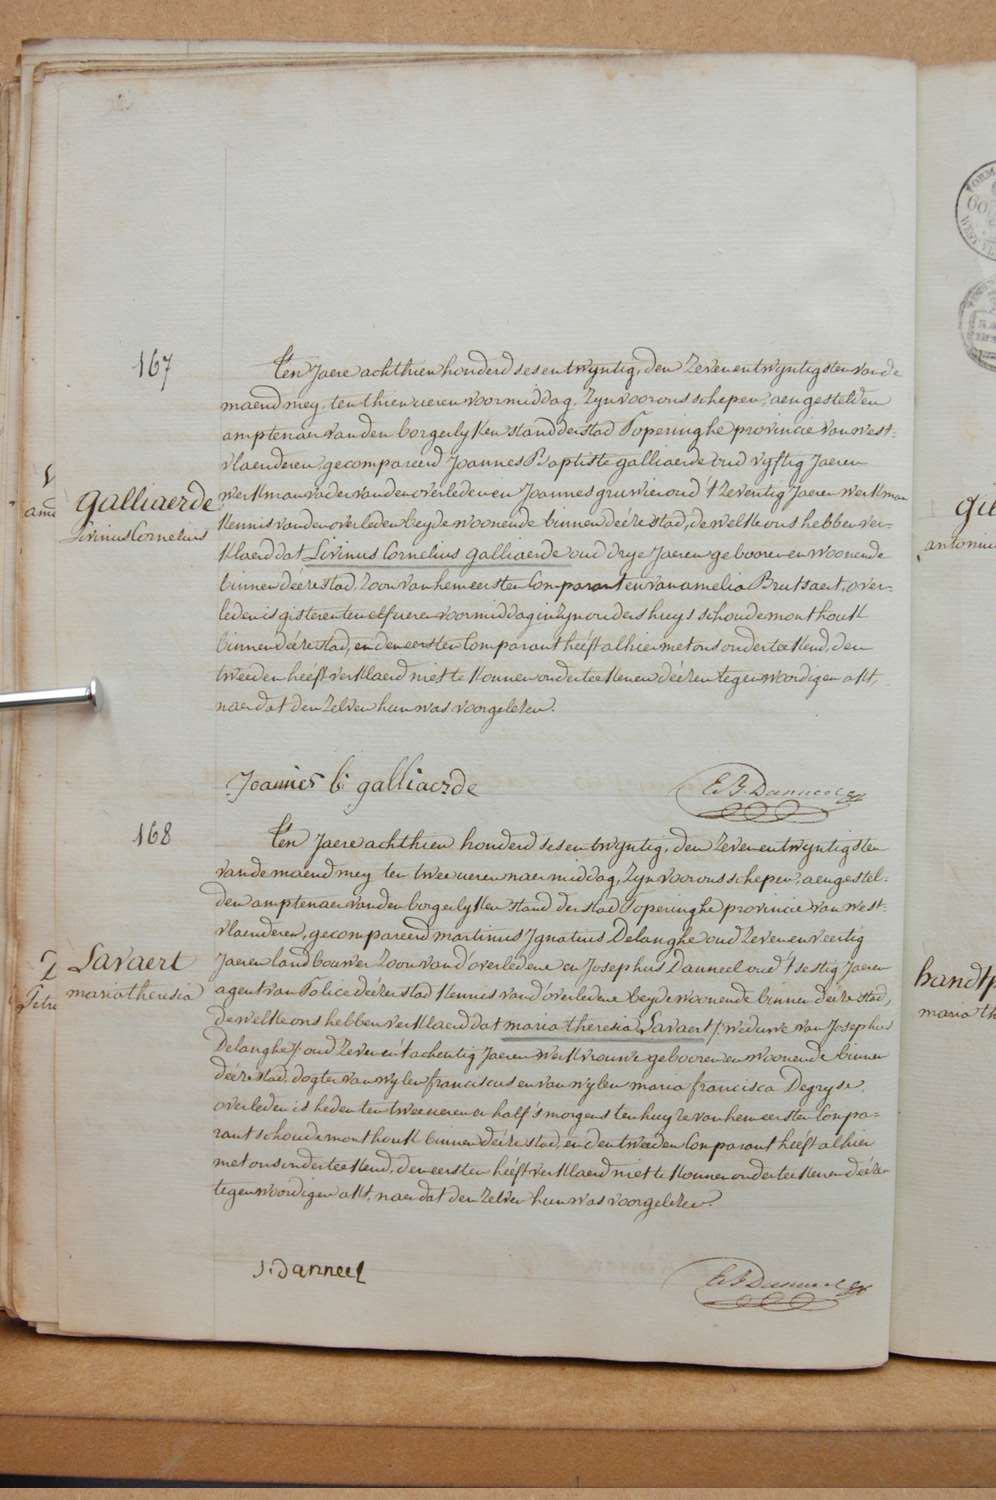 167
galliaerde
Livinus Cornelius
Ten Jaere achthien honderd sesentwyntig, den Zevenentwyntigsten van de
maend mey, ten thien ueren voormiddag, Zyn voor ons schepen, aengestelden
amptenaer van den borgerlyken stand der stad Poperinghe provincie van west-
vlaenderen, gecompareerd Joannes Baptiste galliaerde oud vyftig Jaeren
werkman vader van den overleden en Joannes gruwier oud 't Zeventig Jaeren werkman
kennis van den overleden beyde woonende binnen deéze stad, dewelke ons hebben ver-
klaerd dat Livinus Cornelius galliaerde oud drye Jaeren gebooren en woonende
binnen deéze stad, Zoon van hem eersten Comparant en van amelia Brutsaert, over-
leden is gisteren ten elf ueren voormiddag in Zyn ouders huys schoudemonthouk
binnen deéze stad, en den eersten Comparant heéft alhier met ons onderteekend, den
tweeden heéft verklaerd niet te konnen onderteekenen deézen tegenwoordigen akt,
naer dat den Zelven hun was voorgelezen.
Joannes b galliaerde
168
Lavaert
maria theresia
Ten Jaere achthien honderd sesentwyntig, den Zevenentwyntigsten
van de maend mey ten twee ueren naermiddag, Zyn voor ons schepen, aengestel-
den amptenaer van den borgerlyken stand der stad Poperinghe provincie van west-
vlaenderen, gecompareerd martinus Ignatius Delanghe oud Zevenenveertig
Jaeren landbouwer Zoon van d'overledene en Josephus Danneel oud 't sestig Jaeren
agent van Police deézer stad kennis van d'overledene beyde woonende binnen deéze stad,
dewelke ons hebben verklaerd dat maria theresia Lavaert /: weduwe van Josephus
Delanghe :/ oud Zeven en 't achentig Jaeren werkvrouwe gebooren en woonende binnen
deéze stad, dogter van wylen franciscus en van wylen maria francisca Degryse,
overleden is heden ten twee ueren en half 's morgens ten huyze van hem eersten Compa-
rant schoudemonthouk binnen deéze stad, en den tweeden Comparant heéft alhier
met ons onderteekend, den eersten heéft verklaerd niet te konnen onderteekenen deézen
tegenwoordigen akt, naer dat den Zelven hun was voorgelezen.
J. Danneel